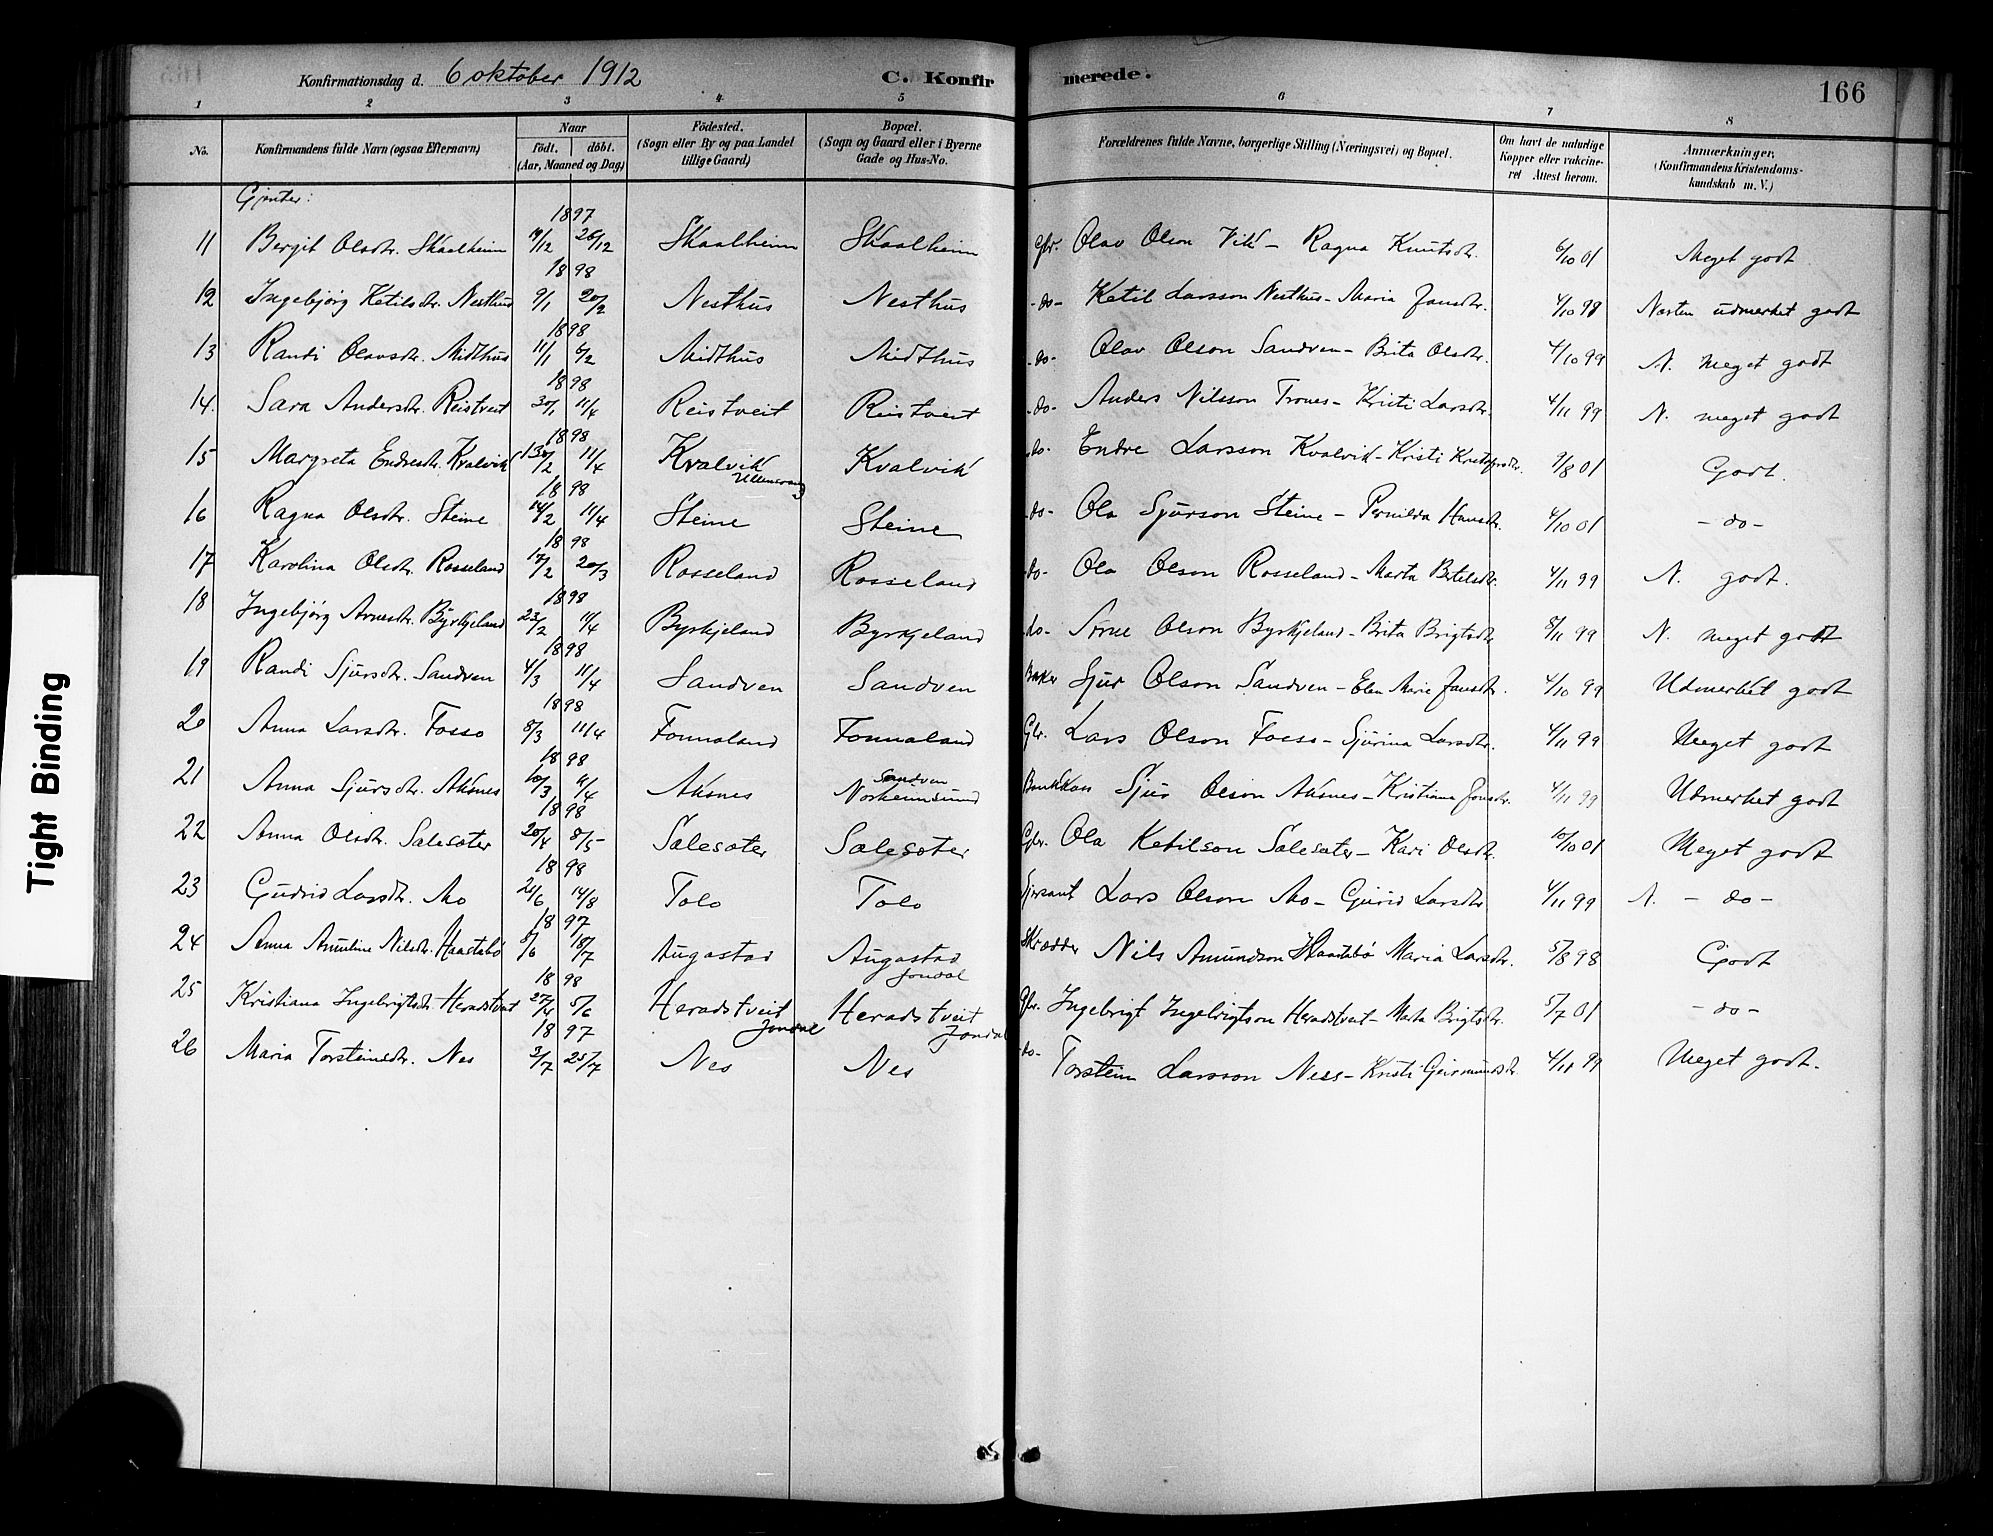 Konfirmationsdag d. 6 oktober 1912 C. Konfirmerede. 166
1 2 3 4 5 6 7 8
No. Konfirmandens fulde Navn (ogsaa Efternavn) Naar födt. döbt. (Aar, Maaned og Dag) Födested. (Sogn eller By og paa Landet tillige Gaard) Bopæl. (Sogn og Gaard eller i Byerne Gade og Hus-No. Forældrenes fulde Navne, borgerlige Stilling (Næringsvei) og Bopæl. Om havt de naturlige Kopper eller vakcineret Attest herom. Anmærkninger. (Konfirmandens Kristendomskundskab m. V.)
Gjenter:
1897
11 Bergit Olsdtr. Skaalheim 14/12 26/12 Skaalheim Skaalheim Gbr. Olav Olson Vik - Ragna Knutsdtr. 6/10 01 Meget godt
1898
12 Ingebjörg Ketilsdtr. Nesthus 9/1 20/2 Nesthus Nesthus -do- Ketil Larsson Nesthus - Maria Jansdtr. 4/10 99 Nesten udmerket godt
1898
13 Randi Olavsdtr. Midthus 11/1 6/2 Midthus Midthus -do- Olav Olson Sandven - Brita Olsdtr. 4/10 99 N. meget godt
1898
14. Sara Andersdtr. Reistveit 30/1 11/4 Reistveit Reistveit -do- Anders Nilsson Trones - Kristi Larsdtr. 4/11 99 N. meget godt
1898
15 Margreta Endresdtr. Kvalvik 13/2 11/4 Kvalvik Kvalvik -do- Endre Larsson Kvalvik - Kristi Kristofersdtr. 9/8 01 Godt.
1898
16 Ragna Olsdtr. Steine 14/2 11/4 Steine Steine -do- Ola Sjurson Steine - Pernilda Hansdtr. 4/10 01 - do -
1898
17 Karolina Olsdtr. Rosseland 17/2 20/3 Rosseland Rosseland -do- Ola Olson Rosseland - Marta Botelsdtr. 4/11 99 N. godt.
1898
18 Ingebjörg Arnesdtr. Byrkjeland 23/2 11/4 Byrkjeland Byrkjeland -do- Arne Olson Byrkjeland - Brita Brigtsdtr 8/11 99 N. meget godt
1898
19 Randi Sjursdtr. Sandven 4/3 11/4 Sandven Sandven Baker Sjur Olson Sandven - Elen Marie Jansdtr. 4/10 99 Udmerket godt
1898
20 Anna Larsdtr. Fosso 8/3 11/4 Fonnaland Fonnaland Gbr. Lars Olson Foess - Sjurina Larsdtr. 4/11 99 Meget godt
1898
21 Anna Sjursdtr. Aksnes 10/3 11/4 Aksnes Sandven Norheimsund Bankkass Sjur Olson Aksnes - Kristiana Jonsdtr. 4/11 99 Udmerket godt
1898
22 Anna Olsdtr. Salesæter 20/4 8/5 Salesæter Salesæter Gbr. Ola Ketilson Salesæter - Kari Olsdtr. 10/10 01 Meget godt
1898
23 Gudrid Larsdtr. Mo 21/6 14/8 Tolo Tolo Lars Olson Mo - Gjurid Larsdtr 4/11 99 N. - do -
1897
24 Anna Amuline Nilsdtr. Haastabö 8/6 18/7 Augastad Augastad Jondal Skrædder Nils Amundson Haastabö Maria Larsdtr. 5/8 98 Godt
1898
25 Kristiana Ingebrigtsdtr. Heradstveit 27/4 5/6 Heradstveit Jondal Heradstveit Jondal Gbr. Ingebrigt Ingebrigtson Heradstveit - Marta Brigtsdtr. 5/7 01 - do -
1897
26 Maria Torsteinsdtr. Nes 3/7 25/7 Nes Nes -do- Torstein Larsson Ness - Kristi Geirmundsdtr. 4/11 99 Meget godt.
Tight Binding